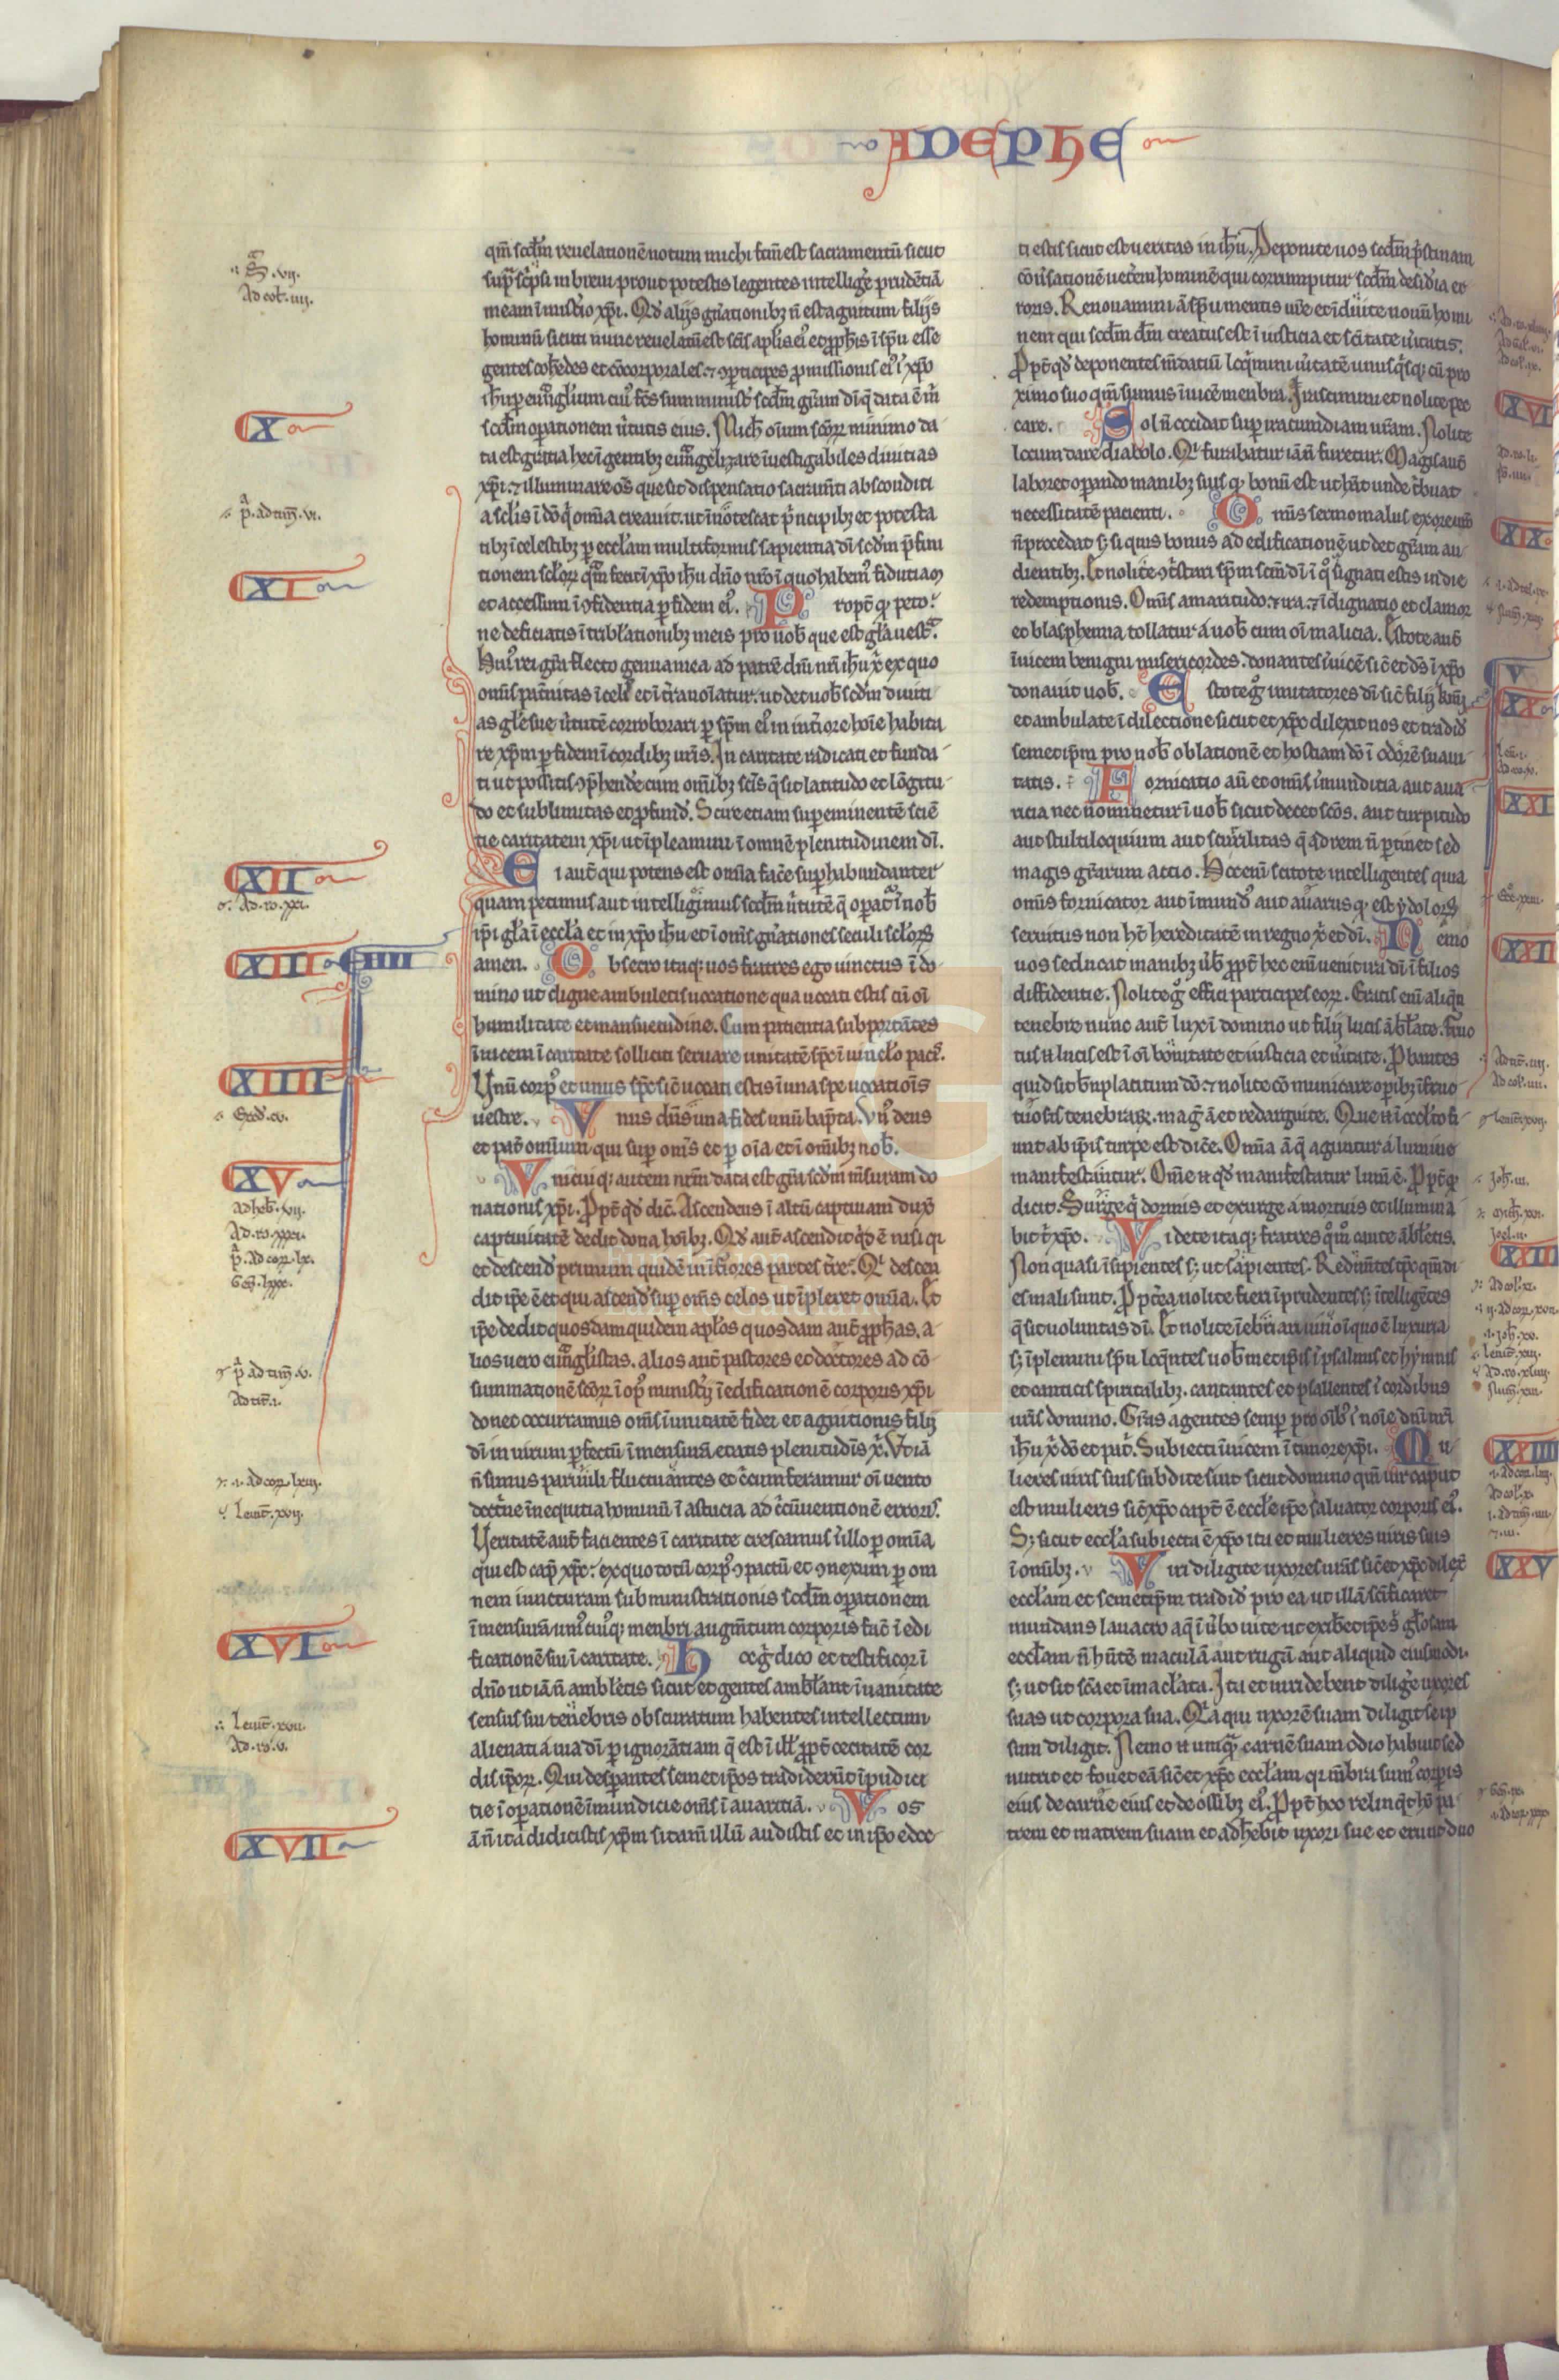 AD EPHE
qm̄ scd̄m reuelationē notum michi fcm̄ est sacramentū sicut
sup̄ sc̄psi in breui prout potestis legentes intelliḡe prudētiā
meam ī mist̄io xp̄i. Qd̄ alijs gn̄ationibꝫ n̄ est agnitum filijs
hominū sicuti nunc reuelatū est sc̄is apl̄is eiꝰ et ꝓph̄is ī sp̄u esse
gentes coh̄edes et cōcorporales ⁊ ꝯp̄ticipes ꝓmissionis eiꝰ ī xp̄o
ih̄u ꝑ euāg̃lium cuiꝰ fc̄s sum minist̄ scd̄m gr̄am dī q̄ data ē m̄
scd̄m oꝑationem u̓tutis eius. Mich̄ oīum sc̄oꝝ minimo da
ta est gr̄tia hec ī gentibꝫ euāgelizare īuestigabiles diuitias
xp̄i. ⁊ illuminare oēs que sit dispensatio sacramēti absconditi
a sc̄lis ī dō q̄ om̄ia creauit. ut īnotescat p̄ncipibꝫ et potesta
tibꝫ ī celestibꝫ ꝑ eccl̄am multiformis sapientia dī scd̄m p̄fini
tionem scl̄oꝝ qm̄ fecit ī xp̄o ih̄u dn̄o nr̄o ī quo habemꝰ fiduciam
et accessum ī ꝯfidentia ꝑ fidem eiꝰ. Propt̄ qꝫ peto
ne deficiatis ī tribl̄ationibꝫ meis pro uob̄ que est gl̄a uest̄a.
Huiꝰ rei gr̄a flecto genua mea ad patrē dn̄i nr̄i ih̄u x̄ ex quo
om̄is pat̄nitas ī cel̄ et ī t̄ra noīatur. ut det uob̄ scd̄m diuiti
as gl̄e sue u̓tutē corroborari ꝑ sp̄m eiꝰ in int̄iore hoīe habita
re xp̄m ꝑ fidem ī cordibꝫ ur̄is. In caritate radicati et funda
ti ut possitis ꝯp̄hend̄e cum om̄ibꝫ sc̄is q̄ sit latitudo et lōgitu
do et sublimitas et ꝓfund̄. Scire etiam suꝑeminentē sciē
tie caritatem xp̄i ut īpleamini ī omnē plenitudinem dī.
Ei aut̄ qui potens est om̄ia fac̄e suꝑhabundanter
quam petimus aut intelligimus scd̄m u̓tutē q̄ oꝑat̄ ī nob̄
ip̄i gl̄a ī eccl̄a et in xp̄o ih̄u et ī om̄s gn̄ationes seculi scl̄oꝝ
amen. Obsecro itaqꝫ uos fratres ego uinctus ī do
mino ut digne ambuletis uocatione qua uocati estis cū oī
humilitate et mansuetudine. Cum patientia subportātes
īuicem ī caritate solliciti seruare unitatē sp̄c ī uinclo pacꝭ.
Unū corpꝰ et unus sp̄c sic̄ uocati estis ī una spe uocatiōis
uestre. Unus dn̄s una fides unū bap̄ta. Vnꝰ deus
et pat̄ omnium. qui suꝑ om̄s et ꝑ oīa et ī om̄ibꝫ nob̄.
Vnicuiqꝫ autem nr̄m data est gr̄a scd̄m m̄suram do
nationis xp̄i. Ppt̄ qd̄ dic̄. Ascendens ī altū captiuam dux̄
captiuitatē dedit dona hoībꝫ. Qd̄ aut̄ ascendit q̄d ē nisi qi
et descend̄ primum quidē in īf̄iores partes t̄re. Qi descen
dit ip̄e ē et qui ascend̄ suꝑ om̄s celos ut īpleret om̄ia. Et
ip̄e dedit quosdam quidem apl̄os quosdam aut̄ ꝓph̄as. a
lios uero euāgl̄istas. alios aut̄ pastores et doctores ad cō
summationē sc̄oꝝ ī opꝰ minist̄ij ī edificationē corporis xp̄i
donec occurramus om̄s ī unitatē fidei et agnitionis filij
dī in uirum ꝑfectū ī mensurā etatis plenitudīs x̄. Vt iā
n̄ simus paruuli fluctuantes et c̄cumferamur oī uento
doct̄ne ī nequitia hominū ī astucia ad c̄cūuentionē erroris.
Ueritatē aut̄ facientes ī caritate crescamus ī illo ꝑ om̄ia
qui est cap̄ xp̄c. ex quo totū corpꝰ ꝯpactū et ꝯnexum ꝑ om
nem iuncturam subministrationis scd̄m oꝑationem
ī mensurā uniꝰ cuiꝰqꝫ menbri augm̄tum corporis fac̄ ī edi
ficationē sui ī caritate. Hoc g̃ dico et testificor ī
dn̄o ut iā n̄ ambl̄etis sicut et gentes ambl̄ant ī uanitate
sensus sui tenebris obscuratum habentes intellectum
alienati a uia dī ꝑ ignorātiam q̄ est ī ill̄ ꝓpt̄ cecitatē cor
dis ip̄oꝝ. Qui desꝑantes semetip̄os tradiderūt īpudici
tie ī oꝑationē īmundicie om̄s ī auaritiā. Vos
āū n̄ ita didicistis xp̄m si tam̄ illū audistis et in ip̄o edoc
ti estis sicut est ueritas in ih̄u. Deponite uos scd̄m p̄stinam
cōu̓sationē uet̄em hominē qui corrumpitur scd̄m desid̄ia er
roris. Renouamini āū sp̄u mentis ur̄e et īduite nouū homi
nem qui scd̄m dm̄ creatus est ī iusticia et sc̄itate u̓itatis.
Ppt̄ qd̄ deponentes m̄datium loq̄mini u̓itatē unusq̄sqꝫ cū pro
ximo suo qm̄ sumus īuicē menbra. Irascimini et nolite pec
care. Sol n̄ occidat suꝑ iracundiam ur̄am. Nolite
locum dare diabolo. Qi furabatur iā n̄ furetur. Magis aut̄
laboret oꝑando manibꝫ suis qꝫ bonū est ut h̄at unde t̄buat
necessitatē pacienti. Om̄is sermo malus ex ore ur̄o
n̄ procedat sꝫ si quis bonus ad edificationē ut det gr̄am au
dientibꝫ. Et nolite ꝯt̄stari sp̄m sc̄m dī ī qͦ signati estis in die
redemptionis. Om̄is amaritudo. ⁊ ira. ⁊ īdignatio et clamor
et blasphemia tollatur a uob̄ cum oī malicia. Estote aut̄
īuicem benigni misericordes. donantes īuicē sic̄ et ds̄ ī xp̄o
donauit uob̄. Estote g̃ imitatores dī sic̄ filij kr̄mi
et ambulate ī dilectione sicut et xp̄c dilexit nos et tradid̄
semetip̄m pro nob̄ oblationē et hostiam dō ī odorē suaui
tatis. Fornicatio aū et om̄is īmunditia aut aua
ricia nec nominetur ī uob̄ sicut decet sc̄os. aut turpitudo
aut stultiloquium aut scurrilitas q̄ ad rem n̄ ꝑtinet sed
magis gr̄arum actio. Hoc enī scitote intelligentes quia
om̄is fornicator aut īmundꝰ aut auarus qꝫ est ydoloꝝ
seruitus non h̄t hereditatē in regno x̄ et dī. Nemo
uos seducat inanibꝫ u̓b̄ ꝓpt̄ hec enī uenit ira dī ī filios
diffidentie. Nolite g̃ effici participes eoꝝ. Eratis enī aliq̄n
tenebre nunc aut̄ lux ī domino ut filij lucis āb̄late. fruc
tus n̄ lucis est ī oī bonitate et iusticia et u̓itate. Pbantes
quid sit bn̄placitum dō. ⁊ nolite cōmunicare oꝑibꝫ īfruc
tuosis tenebraꝝ. mag̃ āū et redarguite. Que n̄ ī occl̄to fi
unt ab ip̄is turpe est dic̄e. Om̄ia āū q̄ aguntur a lumine
manifestantur. Om̄e n̄ qd̄ manifestatur lum̄ ē. Ppt̄ qꝫ
dicit. Surge q̄ dormis et exurge a mortuis et illumina
bit t̄ xp̄c. Videte itaqꝫ fratres qͦm caute āb̄letis.
Non quasi īsipientes sꝫ ut sapientes. Redim̄tes tp̄c qm̄ di
es mali sunt. Ppt̄ea nolite fieri īprudentes sꝫ ītelligētes
q̄ sit uoluntas dī. Et nolite īebriari uino ī quo ē luxuria
sꝫ īplemini sp̄u loq̄ntes uob̄metip̄is ī psalmis et hymnis
et canticis spiritalibꝫ. cantantes et psallentes ī cordibus
ur̄is domino. Gr̄as agentes semꝑ pro oībꝰ ī noīe dn̄i nr̄i
ih̄u x̄ dō et pat̄. Subiecti īuicem ī timore xp̄i. Mu
lieres uiris suis subdite sint sicut domino qm̄ uir caput
est mulieris sic̄ xp̄c capt̄ ē eccl̄e ip̄e saluator corporis eiꝰ.
Sꝫ sicut eccl̄a subiecta ē xp̄o ita et mulieres uiris suis
ī omībꝫ. Viri diligite uxores ur̄as sic̄ et xp̄c dilex̄
eccl̄am et semetip̄m tradid̄ pro ea ut illā sc̄ificaret
mundans lauacro aq̄ ī u̓bo uite ut exib̄et ip̄e s̄ gl̄osam
eccl̄am n̄ h̄ntē maculā aut rugā aut aliquid eiusmodi.
sꝫ ut sit sc̄a et īmacl̄ata. Ita et uiri debent diliḡe uxores
suas ut corpora sua. Qia qui uxorē suam diligit seip
sum diligit. Nemo n̄ unqͣꝫ carnē suam odio habuit sed
nutrit et fouet eā sic̄ et xp̄c eccl̄am qi m̄bra sumꝰ corꝑis
eius de carne eius et de ossibꝫ eiꝰ. Ppt̄ hoc relinq̄t hō pa
trem et matrem suam et adh̄ebit uxori sue et erunt duo
Ad col̄. iiij.
X
XI
XII
Ad. ro. xxi.
XIII
IIII
XIIII
XV
ad heb̄. vij.
XVI
Leuit̄. xvij.
Ad. ro. v.
XVII
V
XX
XXI
XXII
XXIII
XXIIII
XXV